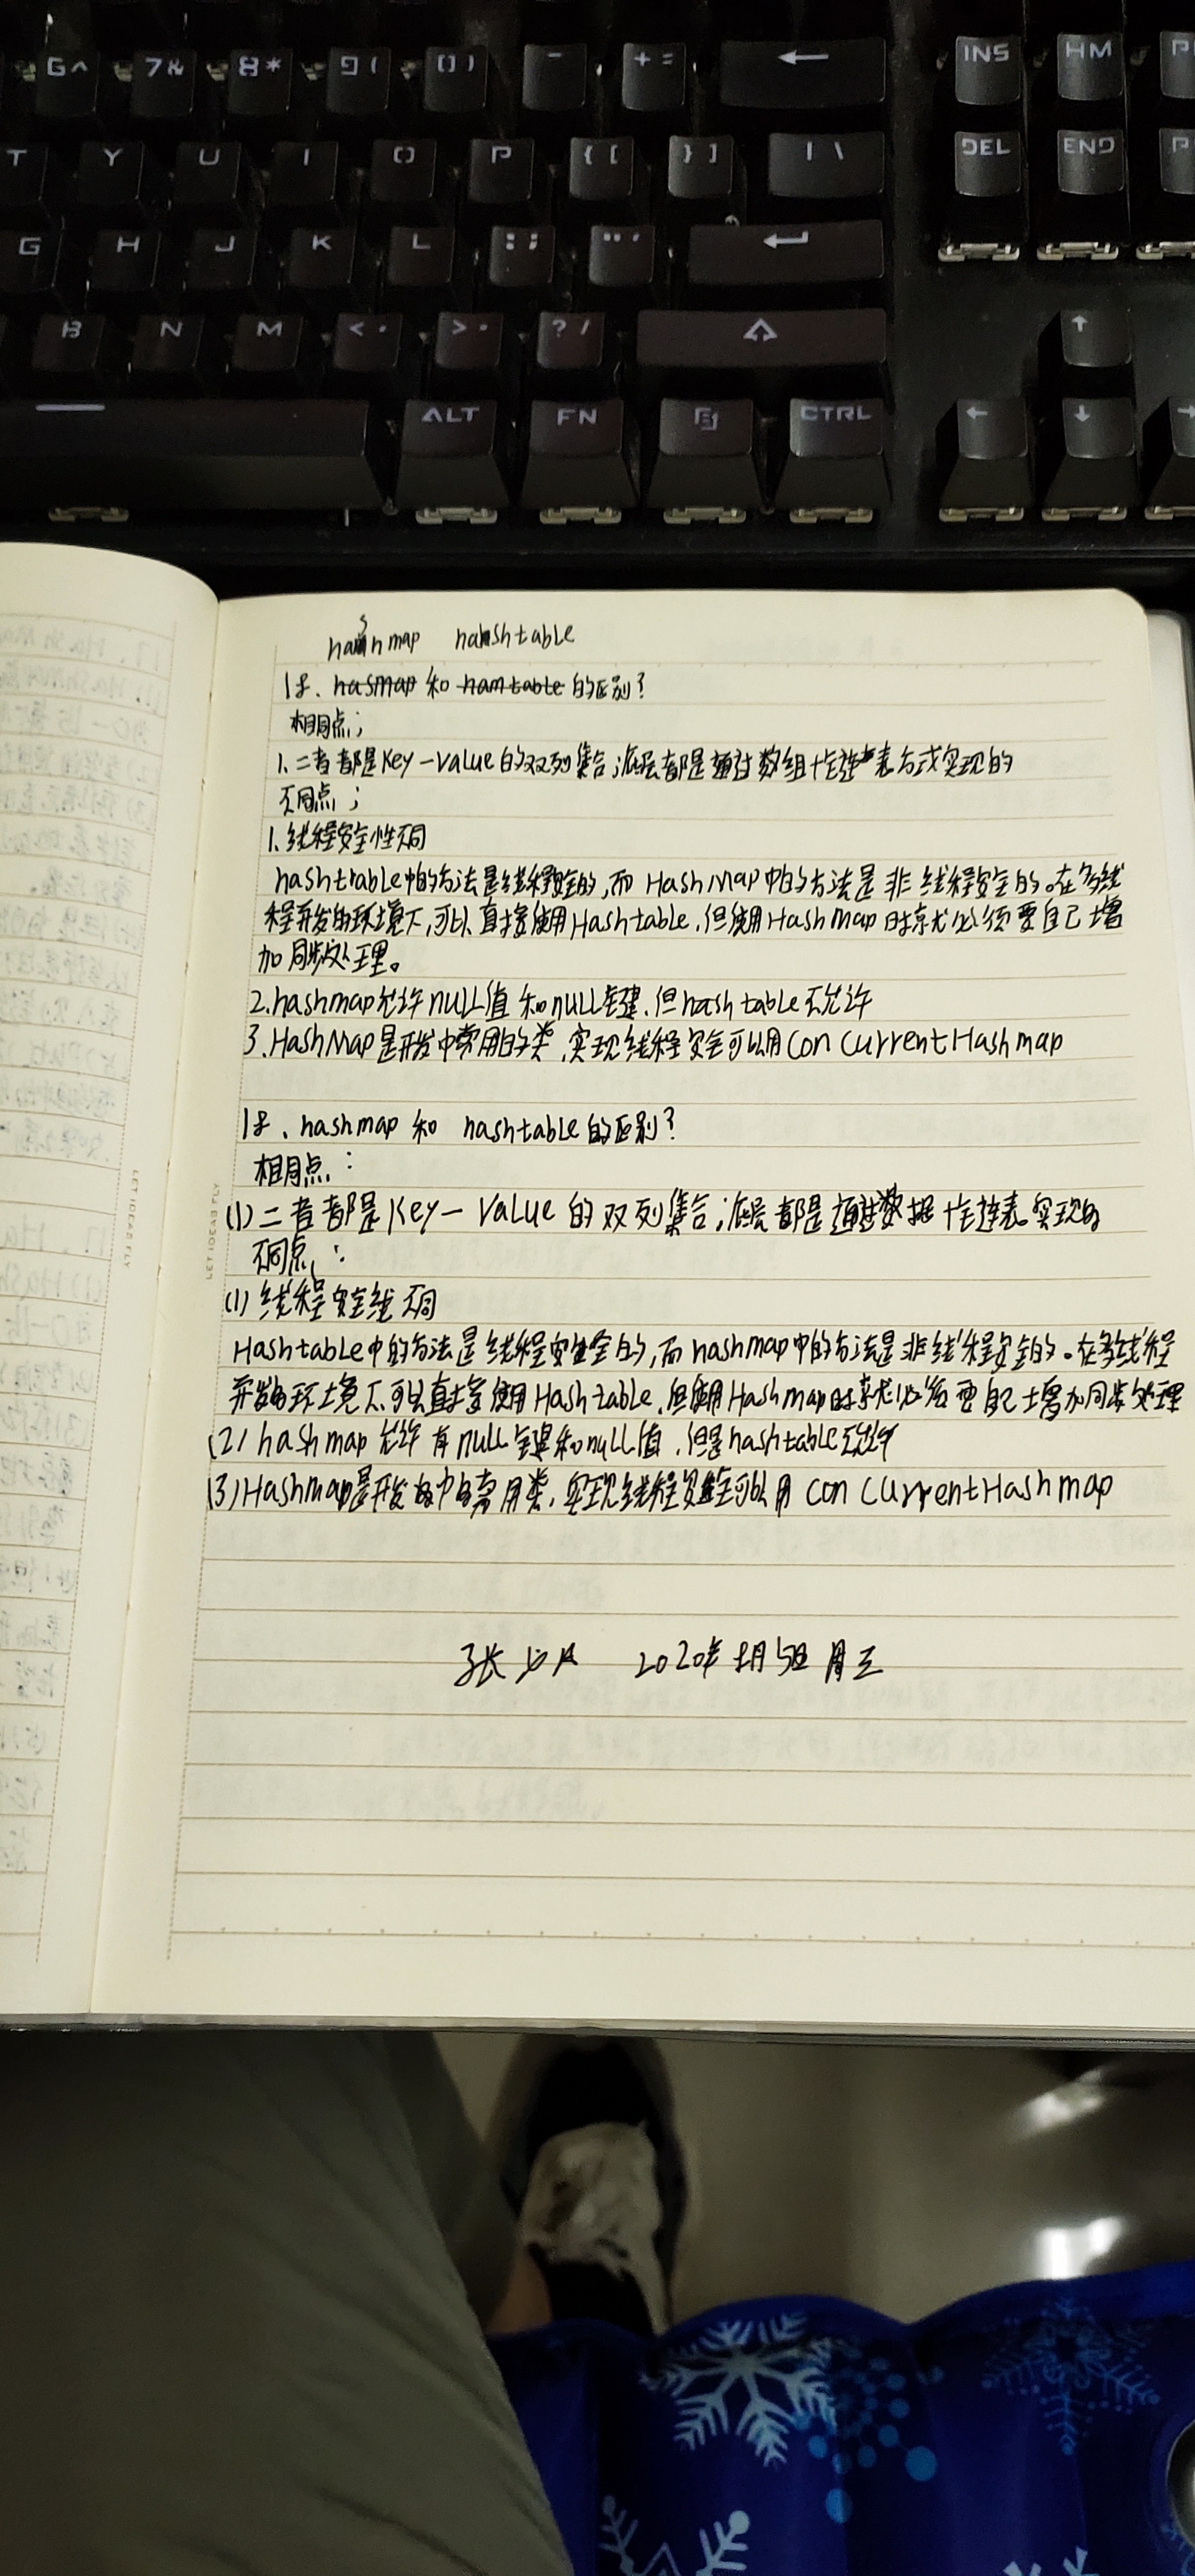 G^ 7& 8* 9( 0) - += ← INS HM
T Y U I O P {[ }] |\ DEL END
G H J K L :; "' ↵
B N M <, >. ?/ ↑
ALT FN CTRL ← ↓ →
hashmap hashtable
18、hasmap 和 hamtable 的区别?
相同点;
1、二者都是key-value的双列集合;底层都是通过数组+连表方式实现的
不同点;
1、线程安全性不同
hashtrable中的方法是线程安全的,而HashMap中的方法是非线程安全的。在多线
程开发的环境下,可以直接使用Hashtable,但使用HashMap时就必须要自己增
加同步处理。
2.hashmap允许null值和null键,但hashtable不允许
3.HashMap是开发中常用的类,实现线程安全可以用ConCurrentHashmap
18、hashmap 和 hashtable的区别?
相同点:
(1)二者都是Key-Value的双列集合;底层都是通过数据+连表实现的
不同点:
(1)线程安全线不同
Hashtable中的方法是线程安全的,而hashmap中的方法是非线程安全的。在多线程
开发的环境下可以直接使用Hashtable,但使用Hashmap时就必须要自己增加同步处理
(2)hashmap允许有null键和null值,但是hashtable不允许
(3)Hashmap是开发中的常用类,实现线程安全可以用ConCurrentHashmap
LET IDEAS FLY
LET IDEAS FLY
张 2020年 月5日 周三